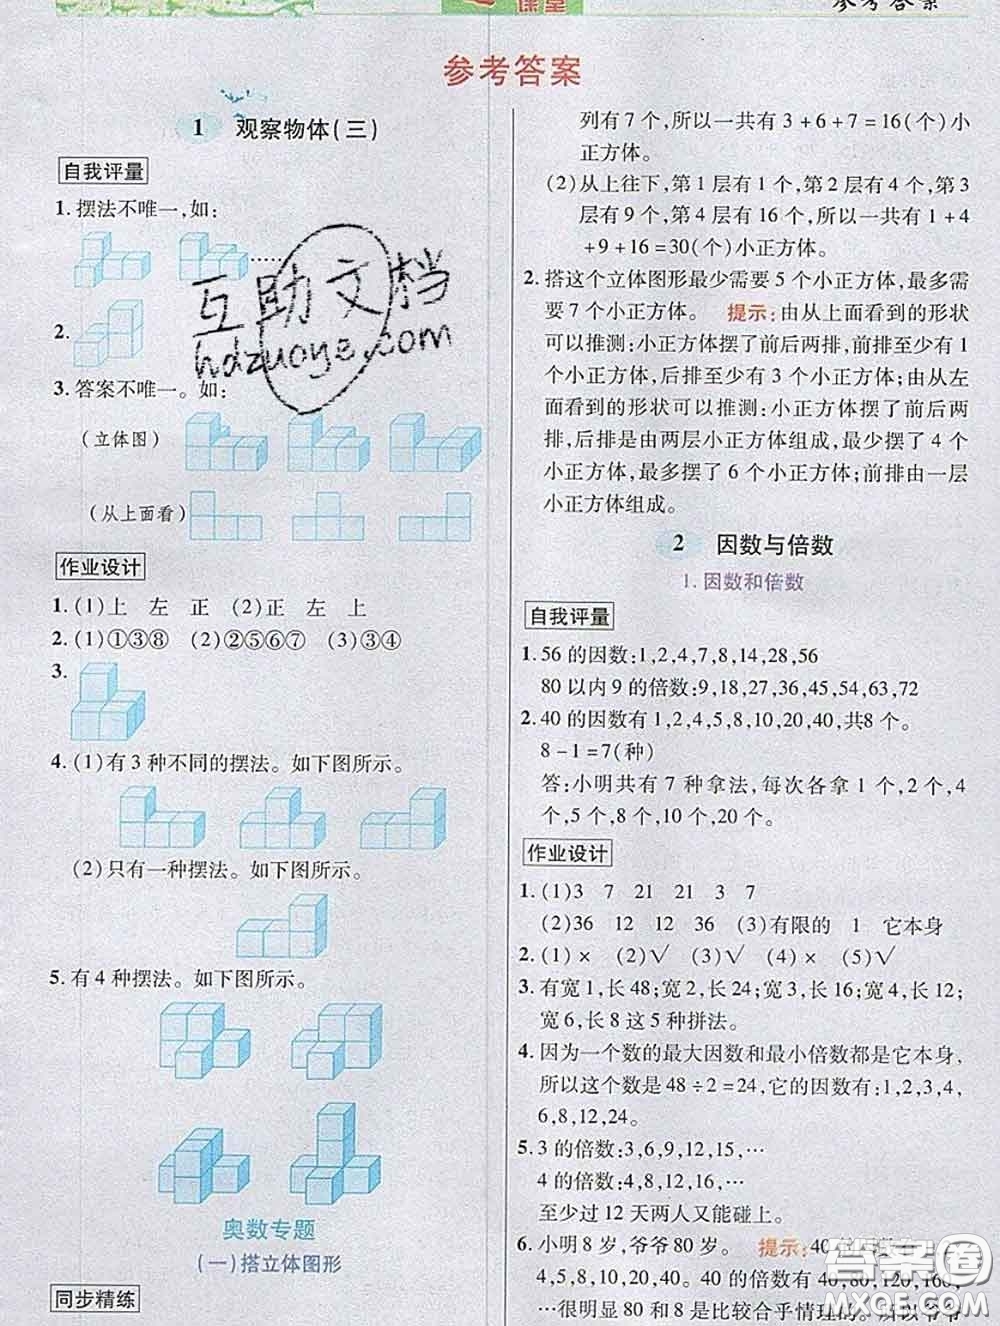 课堂
参考答案
参考答案
1 观察物体(三)
自我评量
1. 摆法不唯一,如:
……
2.
3. 答案不唯一。如:
(立体图)
(从上面看)
作业设计
1. (1)上 左 正 (2)正 左 上
2. (1)①③⑧ (2)②⑤⑥⑦ (3)③④
3.
4. (1)有 3 种不同的摆法。如下图所示。
(2)只有一种摆法。如下图所示。
5. 有 4 种摆法。如下图所示。
奥数专题
(一)搭立体图形
同步精练
列有 7 个,所以一共有 3 + 6 + 7 = 16(个)小
正方体。
(2)从上往下,第 1 层有 1 个,第 2 层有 4 个,第 3
层有 9 个,第 4 层有 16 个,所以一共有 1 + 4
+ 9 + 16 = 30(个)小正方体。
2. 搭这个立体图形最少需要 5 个小正方体,最多需
要 7 个小正方体。 提示:由从上面看到的形状
可以推测:小正方体摆了前后两排,前排至少有 1
个小正方体,后排至少有 3 个小正方体;由从左
面看到的形状可以推测:小正方体摆了前后两
排,后排是由两层小正方体组成,最少摆了 4 个
小正方体,最多摆了 6 个小正方体;前排由一层
小正方体组成。
2 因数与倍数
1. 因数和倍数
自我评量
1. 56 的因数:1,2,4,7,8,14,28,56
80 以内 9 的倍数:9,18,27,36,45,54,63,72
2. 40 的因数有 1,2,4,5,8,10,20,40,共8 个。
8 - 1 = 7(种)
答:小明共有 7 种拿法,每次各拿 1 个、2 个、4
个、5 个、8 个、10 个、20 个。
作业设计
1. (1)3 7 21 21 3 7
(2)36 12 12 36 (3)有限的 1 它本身
2. (1) × (2)√ (3)√ (4) × (5)√
3. 有宽 1,长 48;宽 2,长 24;宽 3,长 16;宽 4,长 12;
宽 6,长 8 这 5 种拼法。
4. 因为一个数的最大因数和最小倍数都是它本身,
所以这个数是 48 ÷ 2 = 24,它的因数有:1,2,3,4,
6,8,12,24。
5. 3 的倍数:3,6,9,12,15,…
4 的倍数:4,8,12,16,…
至少过 12 天两人又能碰上。
6. 小明 8 岁,爷爷 80 岁。 提示:40
4,5,8,10,20,40。40 的倍数有 40,80,120,160,
…很明显 80 和 8 是比较合乎情理的。所以爷爷
互助文档
hdzuoye.com
答案圈
MXQE.COM